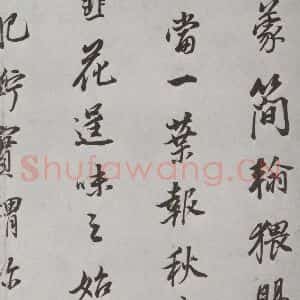 蒙簡翰猥
當一葉報秋
韭花逞味之始
肥羜實謂珍
Shufawang.CN